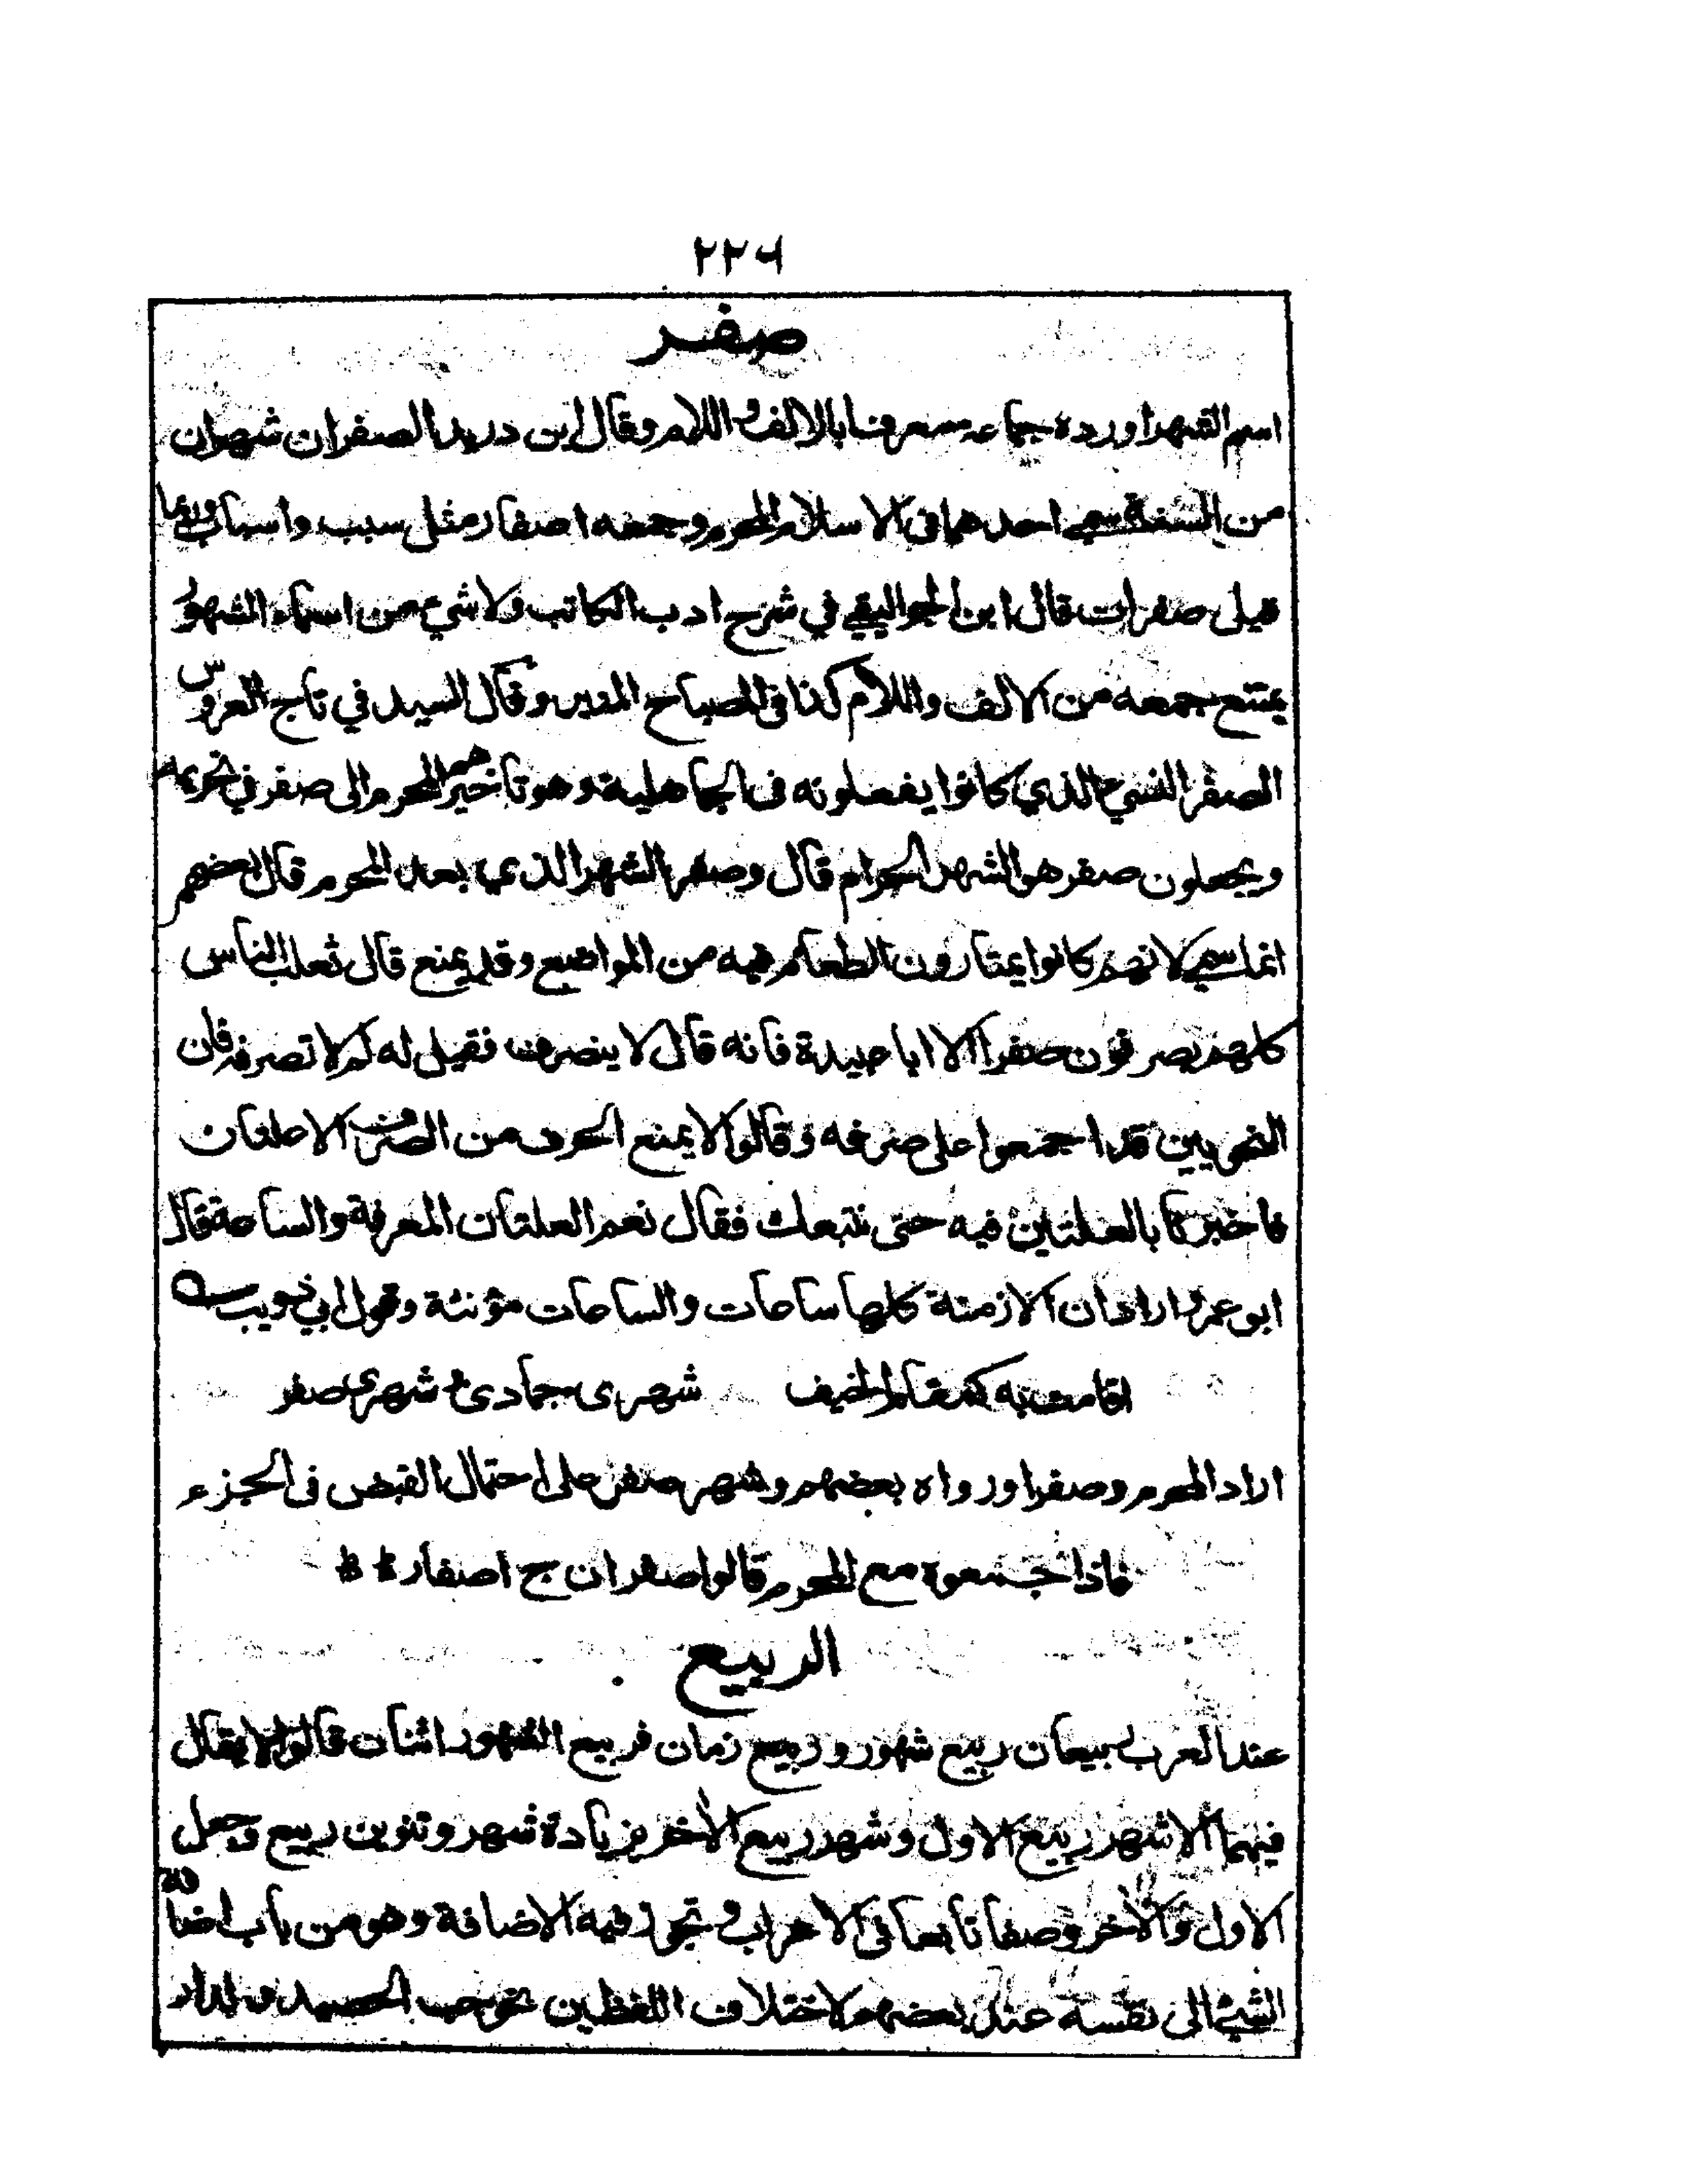 ٢٢٦
صفر
اسم الشهر اورده جماعة معرفا بالالف واللام وقال ابن دريد الصفران شهران
من السنة سمي احدهما في الاسلام المحرم وجمعه اصفار مثل سبب واسباب وربما
قيل صفرات قال ابن الجواليقي في شرح ادب الكاتب ولا شيء من اسماء الشهور
يمتنع جمعه من الالف واللام كذا في المصباح المنير وقال السيد في تاج العروس
الصفر النسيء الذي كانوا يفعلونه في الجاهلية وهو تاخيرهم المحرم الى صفر في تحريمه
ويجعلون صفر هو الشهر الحرام قال وصفر الشهر الذي بعد المحرم قال بعضهم
انما سمي لانهم كانوا يمتارون الطعام فيه من المواضع وقد يمنع قال ثعلب الناس
كلهم يصرفون صفرا الا ابا عبيدة فانه قال لا ينصرف فقيل له لم لا تصرفه فان
النحويين قد اجمعوا على صرفه وقالوا لا يمنع الحرف من الصرف الا علتان
فاخبرنا بالعلتين فيه حتى نتبعك فقال نعم العلتان المعرفة والساعة قال
ابو عمرو اراد ان الازمنة كلها ساعات والساعات مؤنثة وقول ابي ذويب
اقامت به كمقام الحنيف شهري جمادى وشهري صفر
اراد المحرم وصفرا ورواه بعضهم وشهر صفر على احتمال القبض في الجزء
فاذا جمعوه مع المحرم قالوا صفران ج اصفار
الربيع
عند العرب ربيعان ربيع شهور وربيع زمان فربيع الشهور اثنان قالوا لا يقال
فيهما الا شهر ربيع الاول وشهر ربيع الآخر بزيادة شهر وتنوين ربيع وجعل
الاول والآخر وصفا تابعا في الاعراب وتجوز فيه الاضافة وهو من باب اضافة
الشيء الى نفسه عند بعضهم لاختلاف اللفظين نحو حب الحصيد ولدار